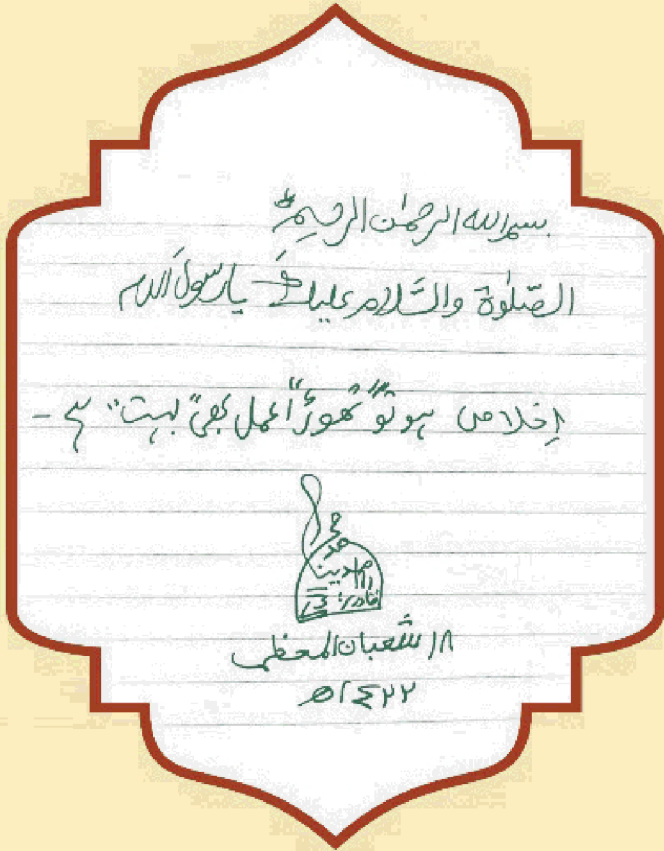 بسم الله الرحمٰن الرحيم ط
الصّلوٰة والسَّلام عليكَ يا رسولَ الله
اِخلاص ہو تو "تھوڑا" عمل بھی "بہت" ہے -
۱۸ شعبان المعظم
۱٤۲۲ھ